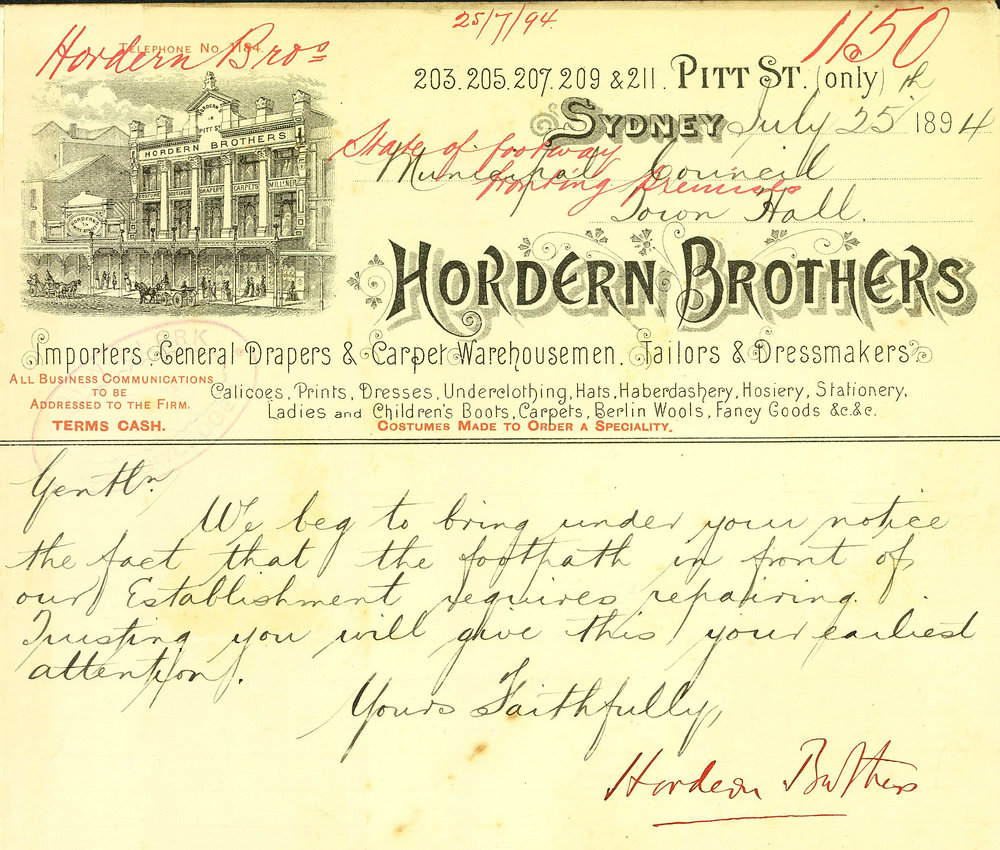 25/7/94.
1150
Hordern Bros
TELEPHONE NO. 1184.
203. 205. 207. 209 & 211. PITT ST. (only)
SYDNEY July 25th 1894
State of footway
fronting Premises
Municipal Council
Town Hall.
HORDERN BROTHERS
PITT ST
HORDERN BROTHERS
DRAPERY CARPETS MILLINERY
HORDERN BROTHERS
IMPORTERS, GENERAL DRAPERS & CARPET WAREHOUSEMEN, TAILORS & DRESSMAKERS
ALL BUSINESS COMMUNICATIONS
TO BE
ADDRESSED TO THE FIRM.
TERMS CASH.
CALICOES, PRINTS, DRESSES, UNDERCLOTHING, HATS, HABERDASHERY, HOSIERY, STATIONERY,
LADIES AND CHILDREN'S BOOTS, CARPETS, BERLIN WOOLS, FANCY GOODS &c. &c.
COSTUMES MADE TO ORDER A SPECIALITY.
Gentln
We beg to bring under your notice
the fact that the footpath in front of
our Establishment requires repairing.
Trusting you will give this your earliest
attention.
Yours Faithfully,
Hordern Brothers